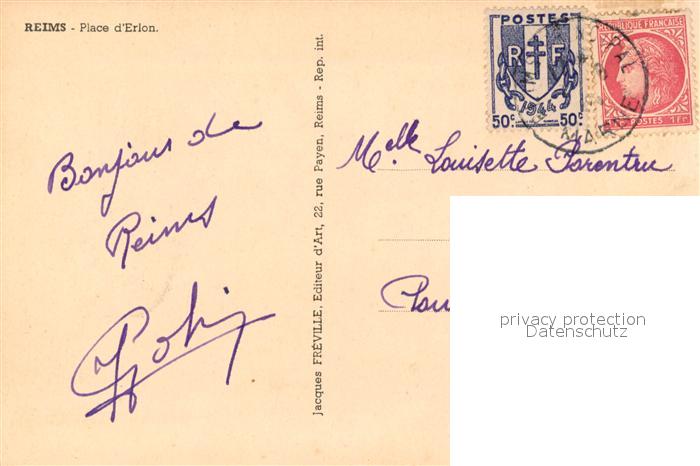 REIMS - Place d'Erlon.
Bonjour de
Reims
Jacques FRÉVILLE, Editeur d'Art, 22, rue Payen, Reims - Rep. int.
POSTES
RF
1944
50c 50c
RÉPUBLIQUE FRANÇAISE
POSTES 1F
MARNE
Melle Louisette Parentru
privacy protection
Datenschutz